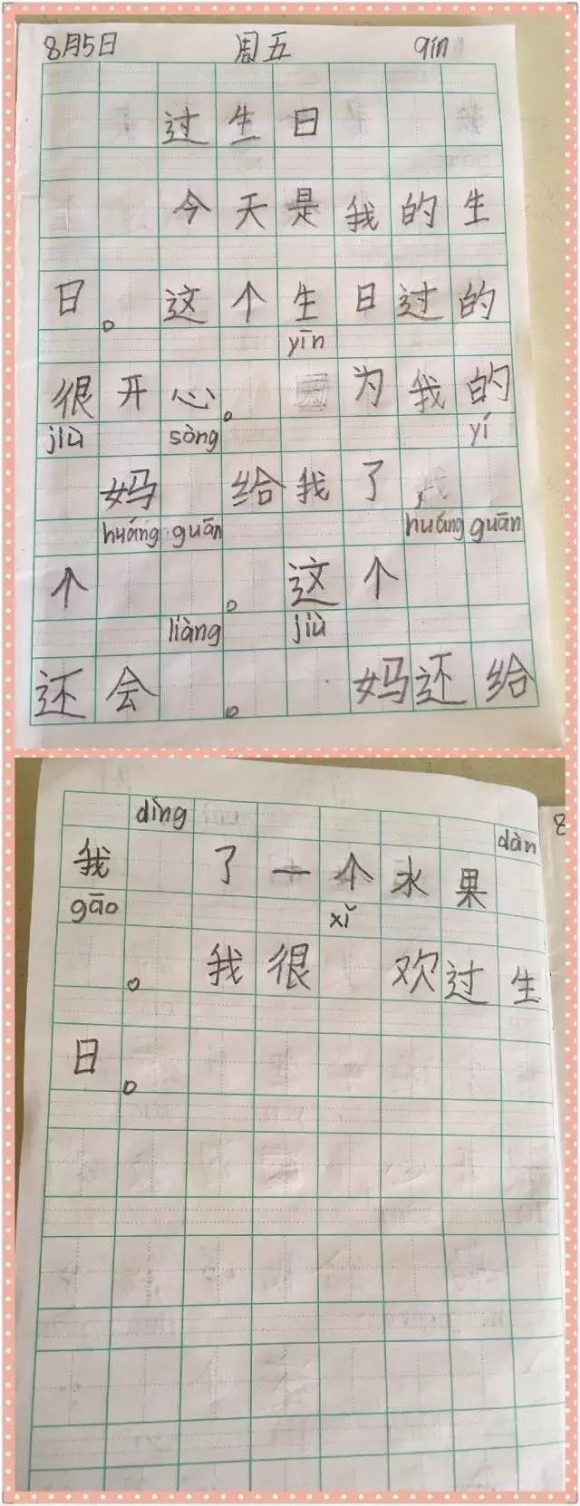 8月5日 周五 qín
过生日
今天是我的生
日。这个生日过的
yīn
很开心。 为我的
jiù sòng yí
妈 给我了，
huáng guān huáng guān
个 。这个
liàng jiù
还会 。 妈还给
dìng dàn
我 了一个水果
gāo xǐ
。我很 欢过生
日。